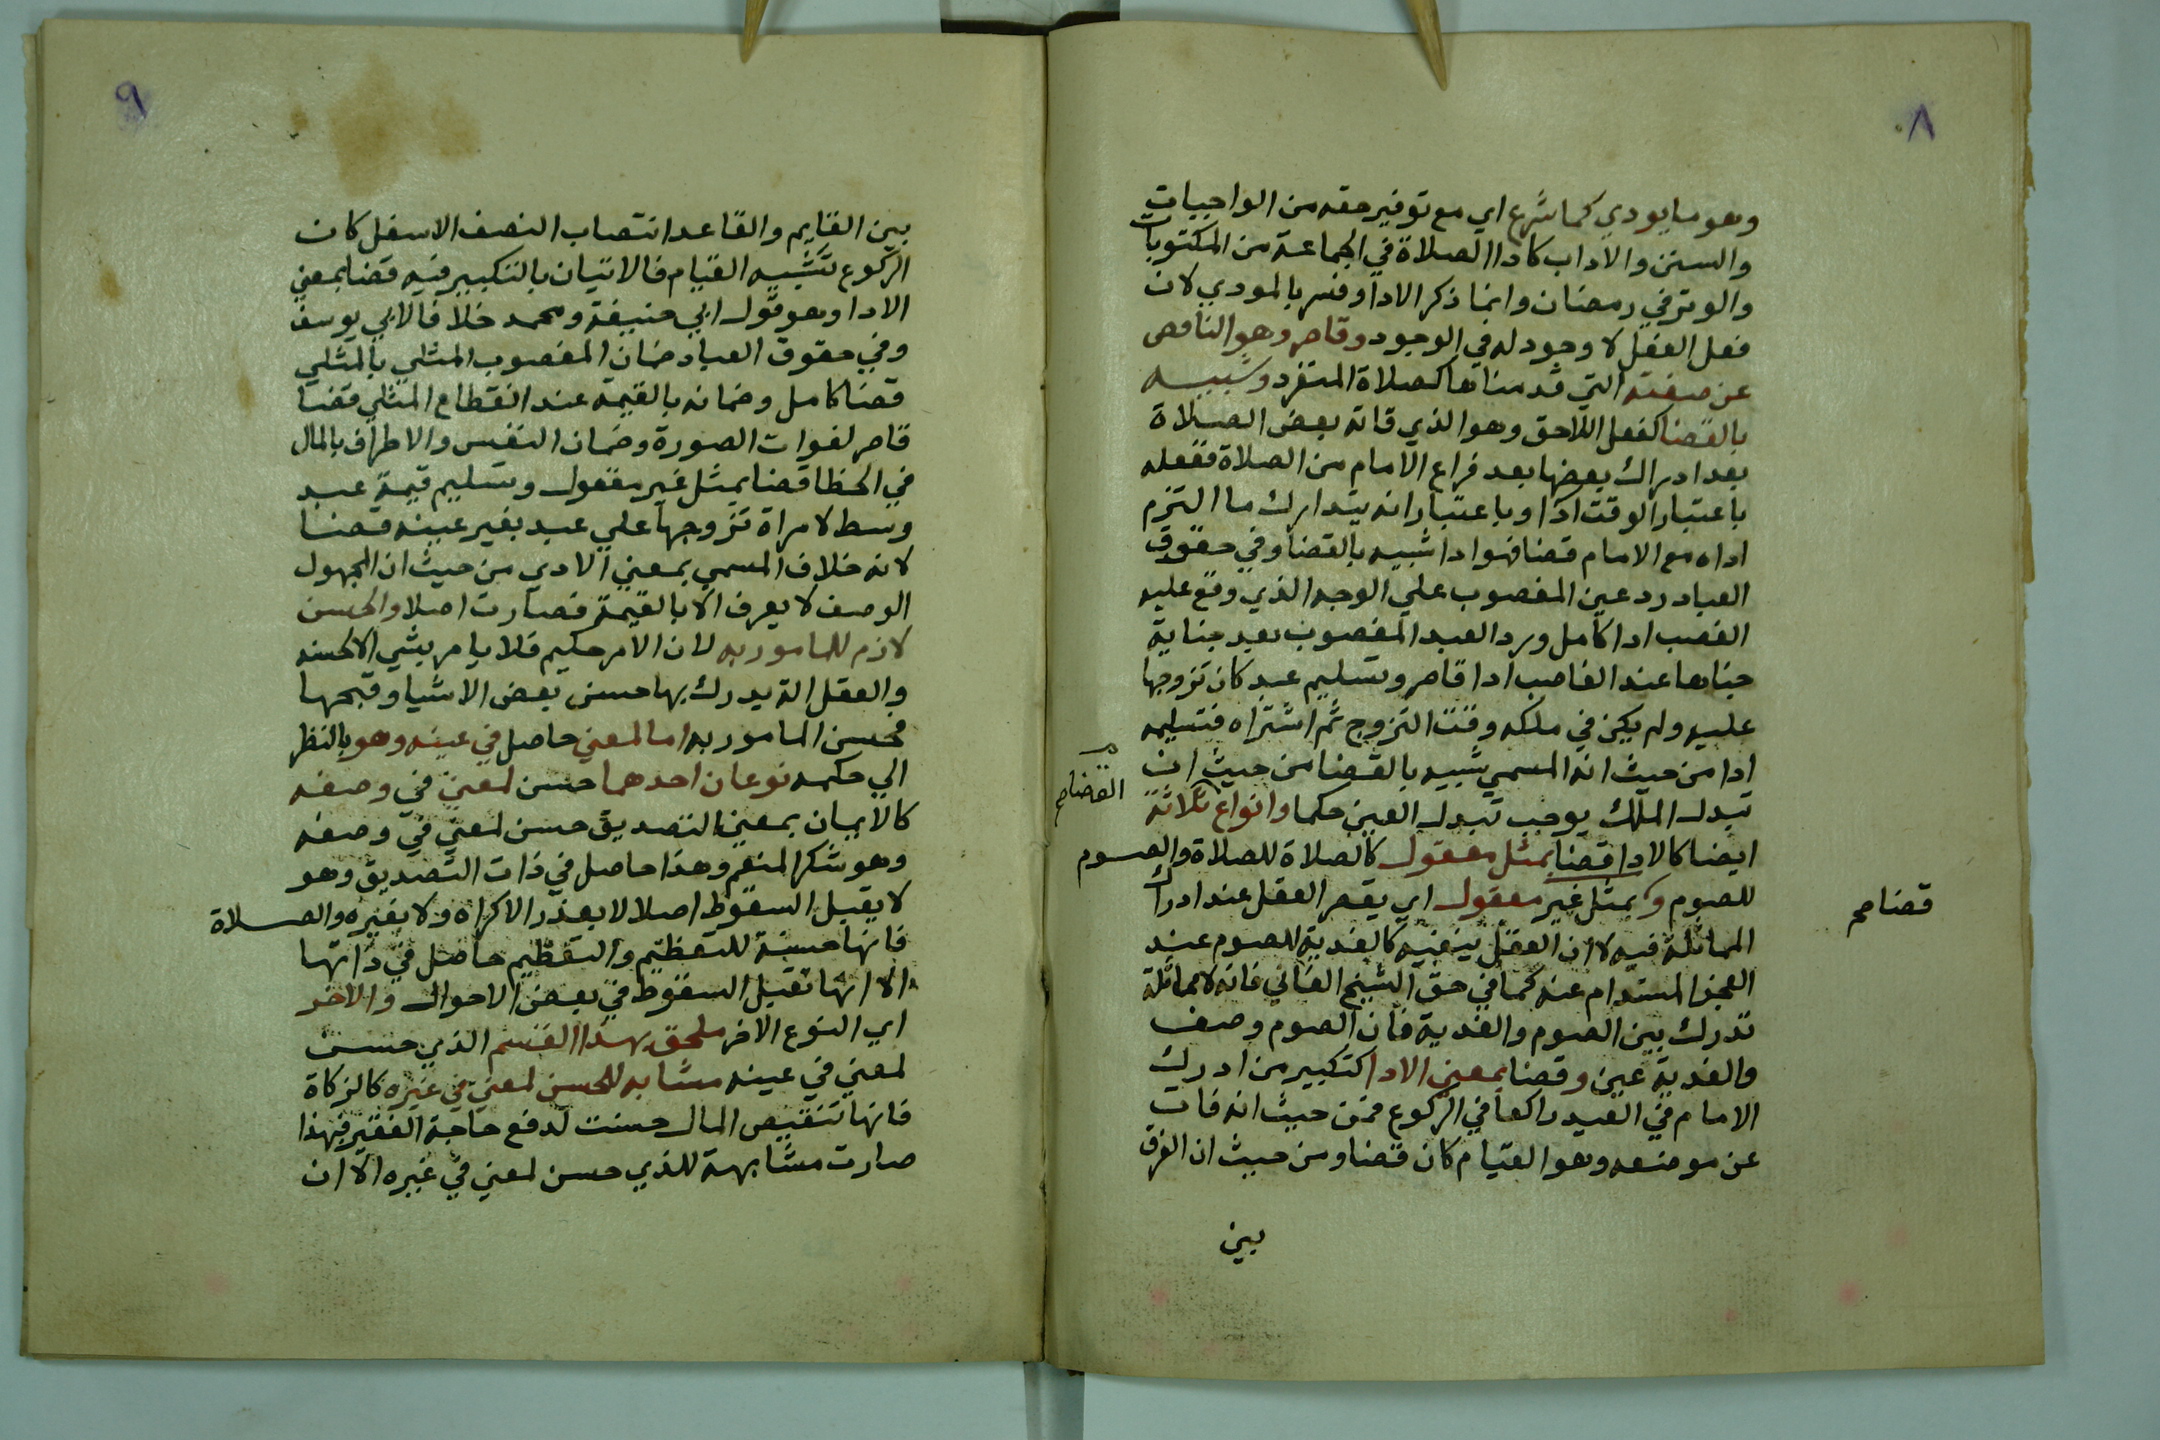 ٨
وهو ما يودي كما شرع اي مع توفير حقه من الواجبات
والسنن والآداب كاداا الصلاة في الجماعة من المكتوبات
والوتر في رمضان وانما ذكر الادا وفسر بالمودي لان
فعل الفعل لا وجود له في الوجود وقاصر وهو الناقص
عن صفته التي قدمناها كصلاة المنفرد وشبيه
بالقضا كفعل اللاحق وهو الذي فاته بعض الصلاة
بعد ادراك بعضها بعد فراغ الامام من الصلاة ففعله
باعتبار الوقت ادا وباعتبار انه يتدارك ما التزم
اداه مع الامام قضا فهو ادا شبيه بالقضا وفي حقوق
العباد رد عين المغصوب علي الوجه الذي وقع عليه
الغصب ادا كامل ورد العبد المغصوب بعد جناية
جناها عند الغاصب ادا قاصر وتسليم عبد كان تزوجها
عليه ولم يكن في ملكه وقت التزوج ثم اشتراه فتسليمه
ادا من حيث انه المسمي شبيه بالقضا من حيث ان
تبدل الملك يوجب تبدل العين حكما وانواع ثلاثة
القضا صح
ايضا كالادا قضا بمثل معقول كالصلاة للصلاة والصوم
للصوم وبمثل غير معقول اي يقصر العقل عند ادراك
قضا صح
المماثلة فيه لا ان العقل ينفيه كالفدية للصوم عند
العجز المستدام عنه كما في حق الشيخ الفاني فانه لا مماثلة
تدرك بين الصوم والفدية فان الصوم وصف
والفدية عين وقضا بمعني الادا كتكبير من ادرك
الامام في العيد راكعا في الركوع فمن حيث انه فات
عن موضعه وهو القيام كان قضا ومن حيث ان الفرق
بين
٩
بين القايم والقاعد انتصاب النصف الاسفل كان
الركوع شبيه القيام فالاتيان بالتكبير فيه قضا بمعني
الادا وهو قول ابي حنيفة ومحمد خلافا لابي يوسف
وفي حقوق العباد ضمان المغصوب المثلي بالمثلي
قضا كامل وضمانه بالقيمة عند انقطاع المثلي قضا
قاصر لفوات الصورة وضمان النفس والاطراف بالمال
في الخطا قضا بمثل غير معقول وتسليم قيمة عبد
وسط لامراة تزوجها علي عبد بغير عينه قضا
لانه خلاف المسمي بمعني الادي من حيث ان المجهول
الوصف لا يعرف الا بالقيمة فصارت اصلا والحسن
لازم للمامور به لان الامر حكيم فلا يامر بشي الا لحسنه
والعقل الة يدرك بها حسن بعض الاشيا وقبحها
فحسن المامور به اما لمعني حاصل في عينه وهو بالنظر
الي حكمه نوعان احدهما حسن لمعني في وصفه
كالايمان بمعني التصديق حسن لمعني في وصفه
وهو شكر المنعم وهذا حاصل في ذات التصديق وهو
لا يقبل السقوط اصلا لا بعذر الاكراه ولا بغيره والصلاة
فانها حسنة للتعظيم والتعظيم حاصل في ذاتها
الا انها تقبل السقوط في بعض الاحوال والاخر
اي النوع الاخر ملحق بهذا القسم الذي حسن
لمعني في عينه مشابه للحسن لمعني في غيره كالزكاة
فانها تنقيص المال حسنت لدفع حاجة الفقير فبهذا
صارت مشابهة للذي حسن لمعني في غيره الا ان